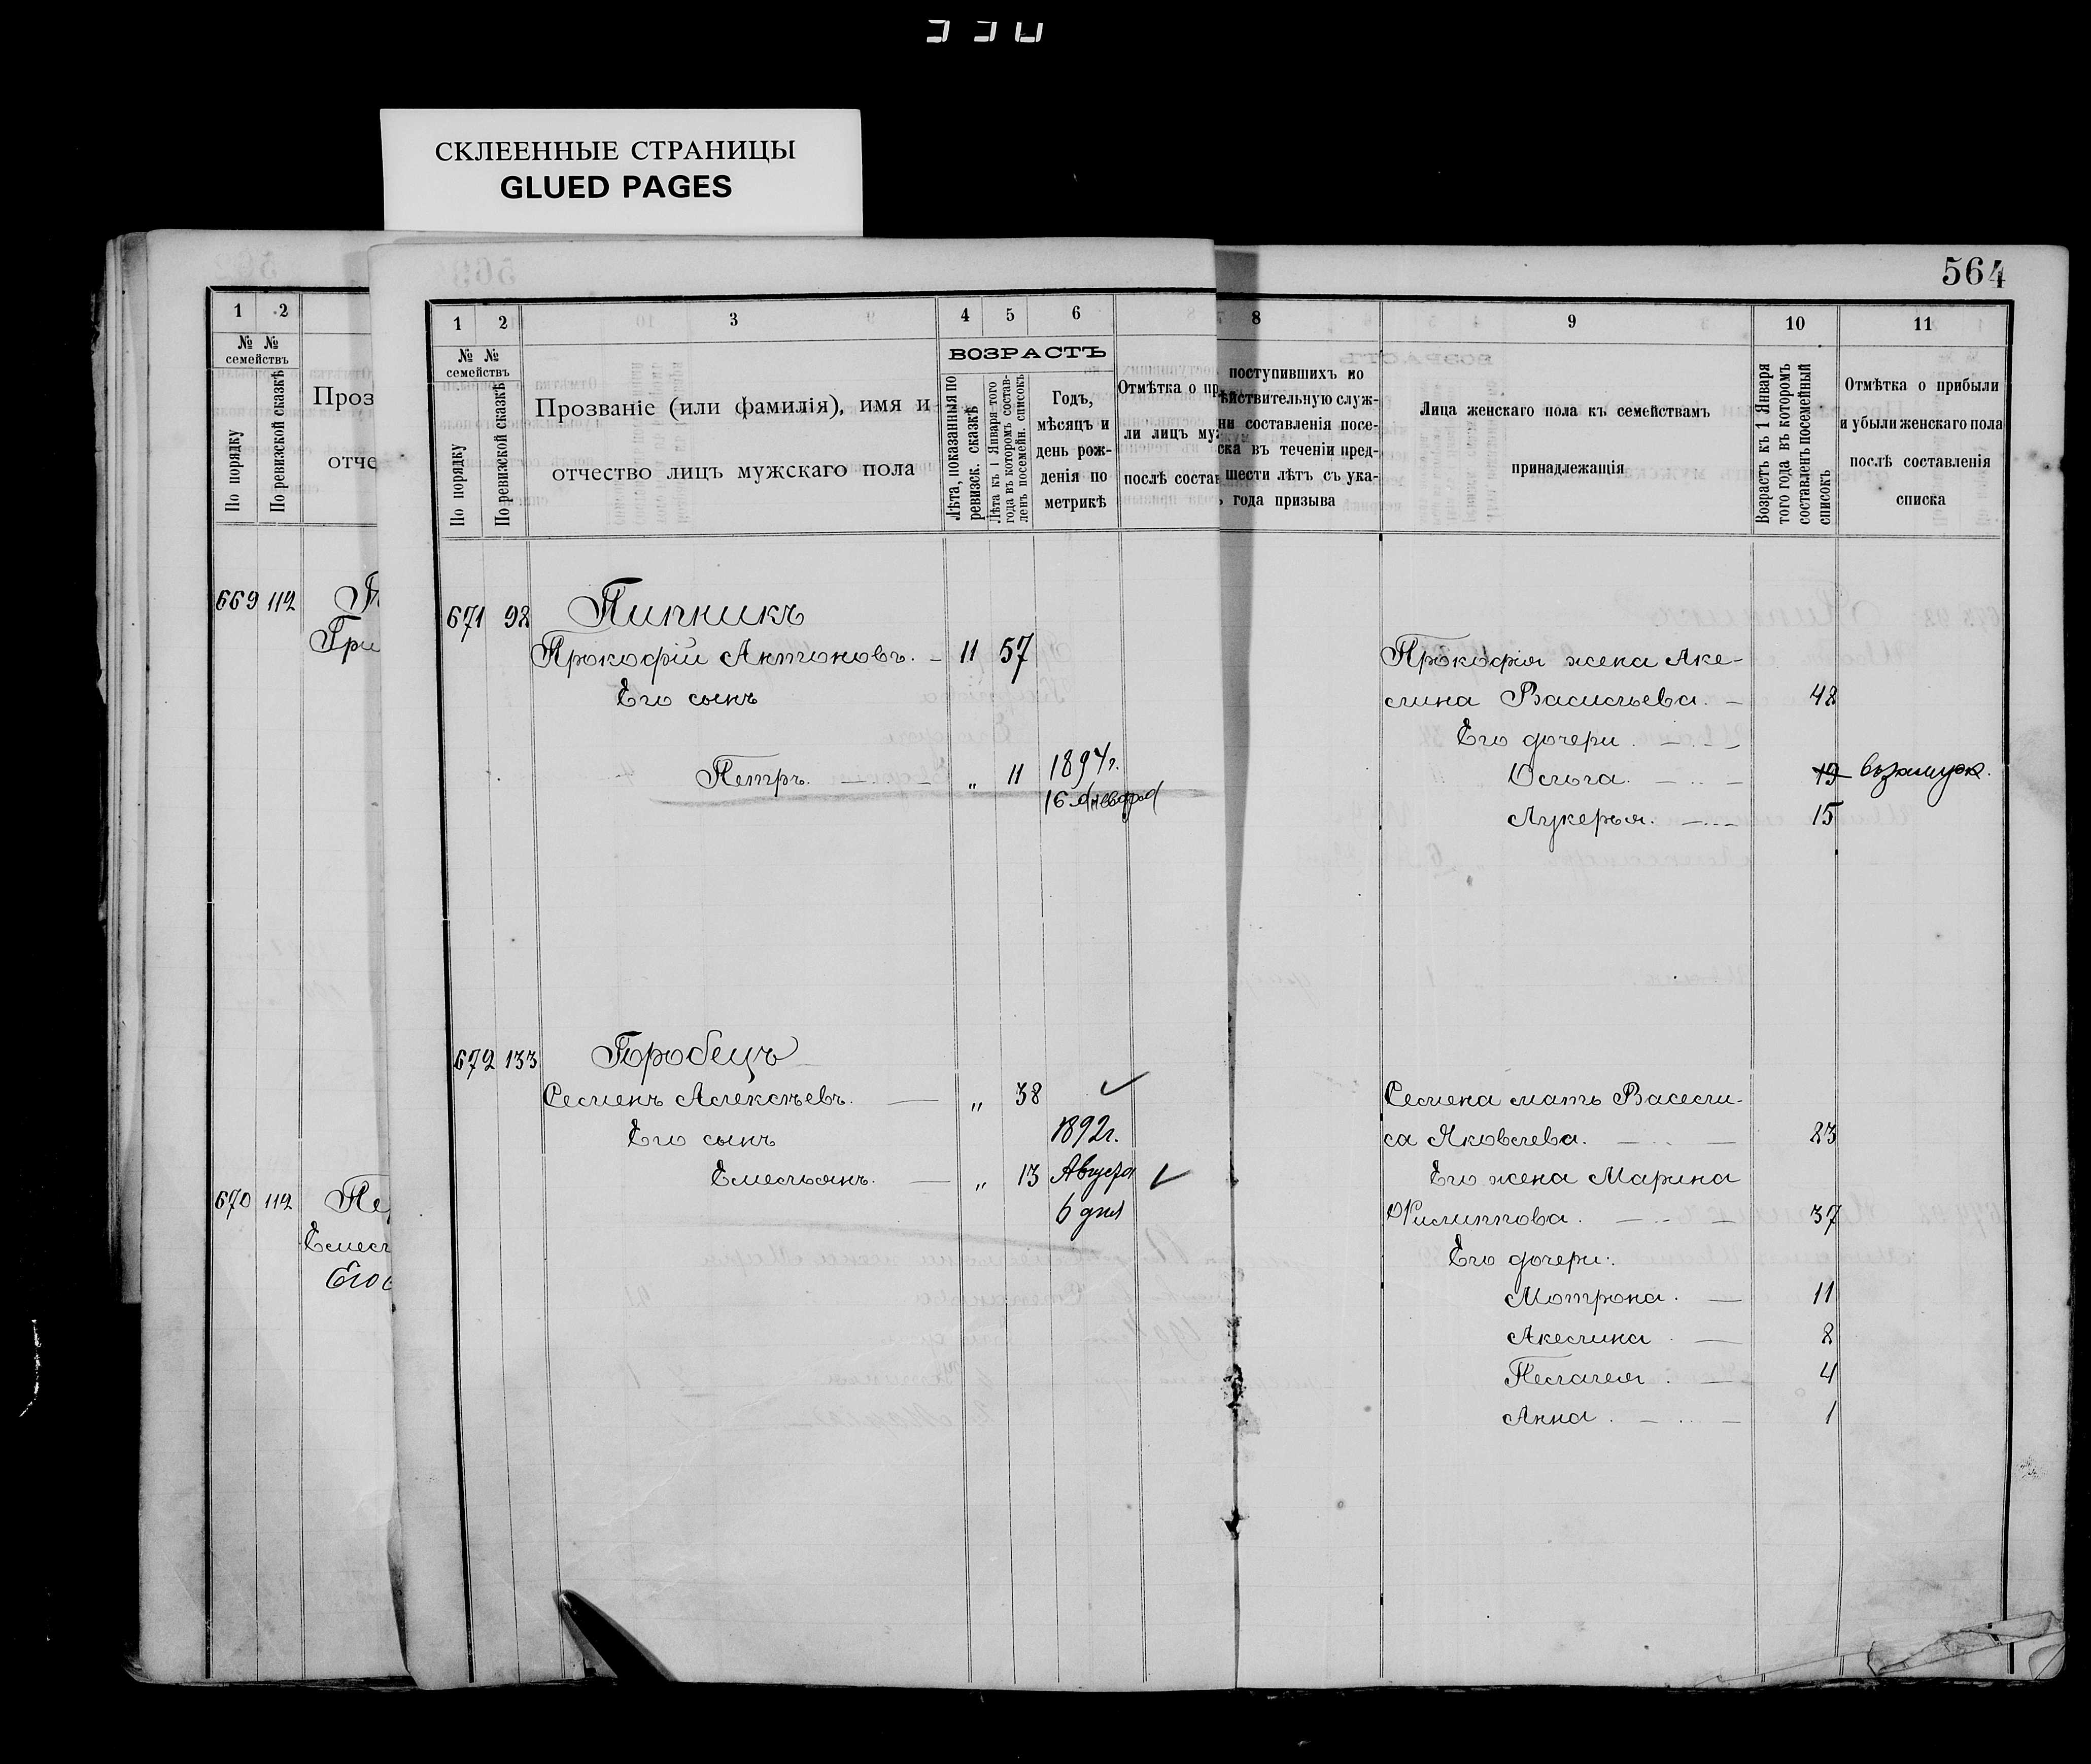 СКЛЕЕННЫЕ СТРАНИЦЫ
GLUED PAGES
564
1 2
№ № семействъ
По порядку
По ревизской сказкѣ
Проз
отче
669 112
Гри
670 112
Емел
Его
1 2 3 4 5 6
№ № семействъ
По порядку
По ревизской сказкѣ
Прозваніе (или фамилія), имя и
отчество лицъ мужскаго пола
ВОЗРАСТЪ
Лѣта, показанныя по ревизск. сказкѣ
Лѣта къ 1 Января того года въ которомъ составленъ посемейн. списокъ
Годъ,
мѣсяцъ и
день рож-
денія по
метрикѣ
Отмѣтка о пр
ли лицъ му
послѣ состав
8 9 10 11
поступившихъ по
ѣйствительную служ-
ни составленія посе-
ска въ теченіи пред-
шести лѣтъ съ ука-
года призыва
Лица женскаго пола къ семействамъ
принадлежащія
Возрастъ къ 1 Января того года въ которомъ составленъ посемейный списокъ
Отмѣтка о прибыли
и убыли женскаго пола
послѣ составленія
списка
671 92 Пипникъ
Прокофій Антоновъ. 11 57
Его сынъ
Петръ. " 11 1894г.
16 Января
Прокофія жена Аке-
лина Васильева. 48
Его дочери
Ольга. 19 взамуж.
Лукерья. 15
672 133 Горобецъ
Семенъ Алексѣевъ. " 38
Его сынъ 1892г.
Емельянъ. " 13 Августа
6 дня
Семена мать Васели-
са Яковлева. 83
Его жена Марина
Филиппова. 37
Его дочери:
Мотрона. 11
Акелина 8
Пелагея. 4
Анна. 1